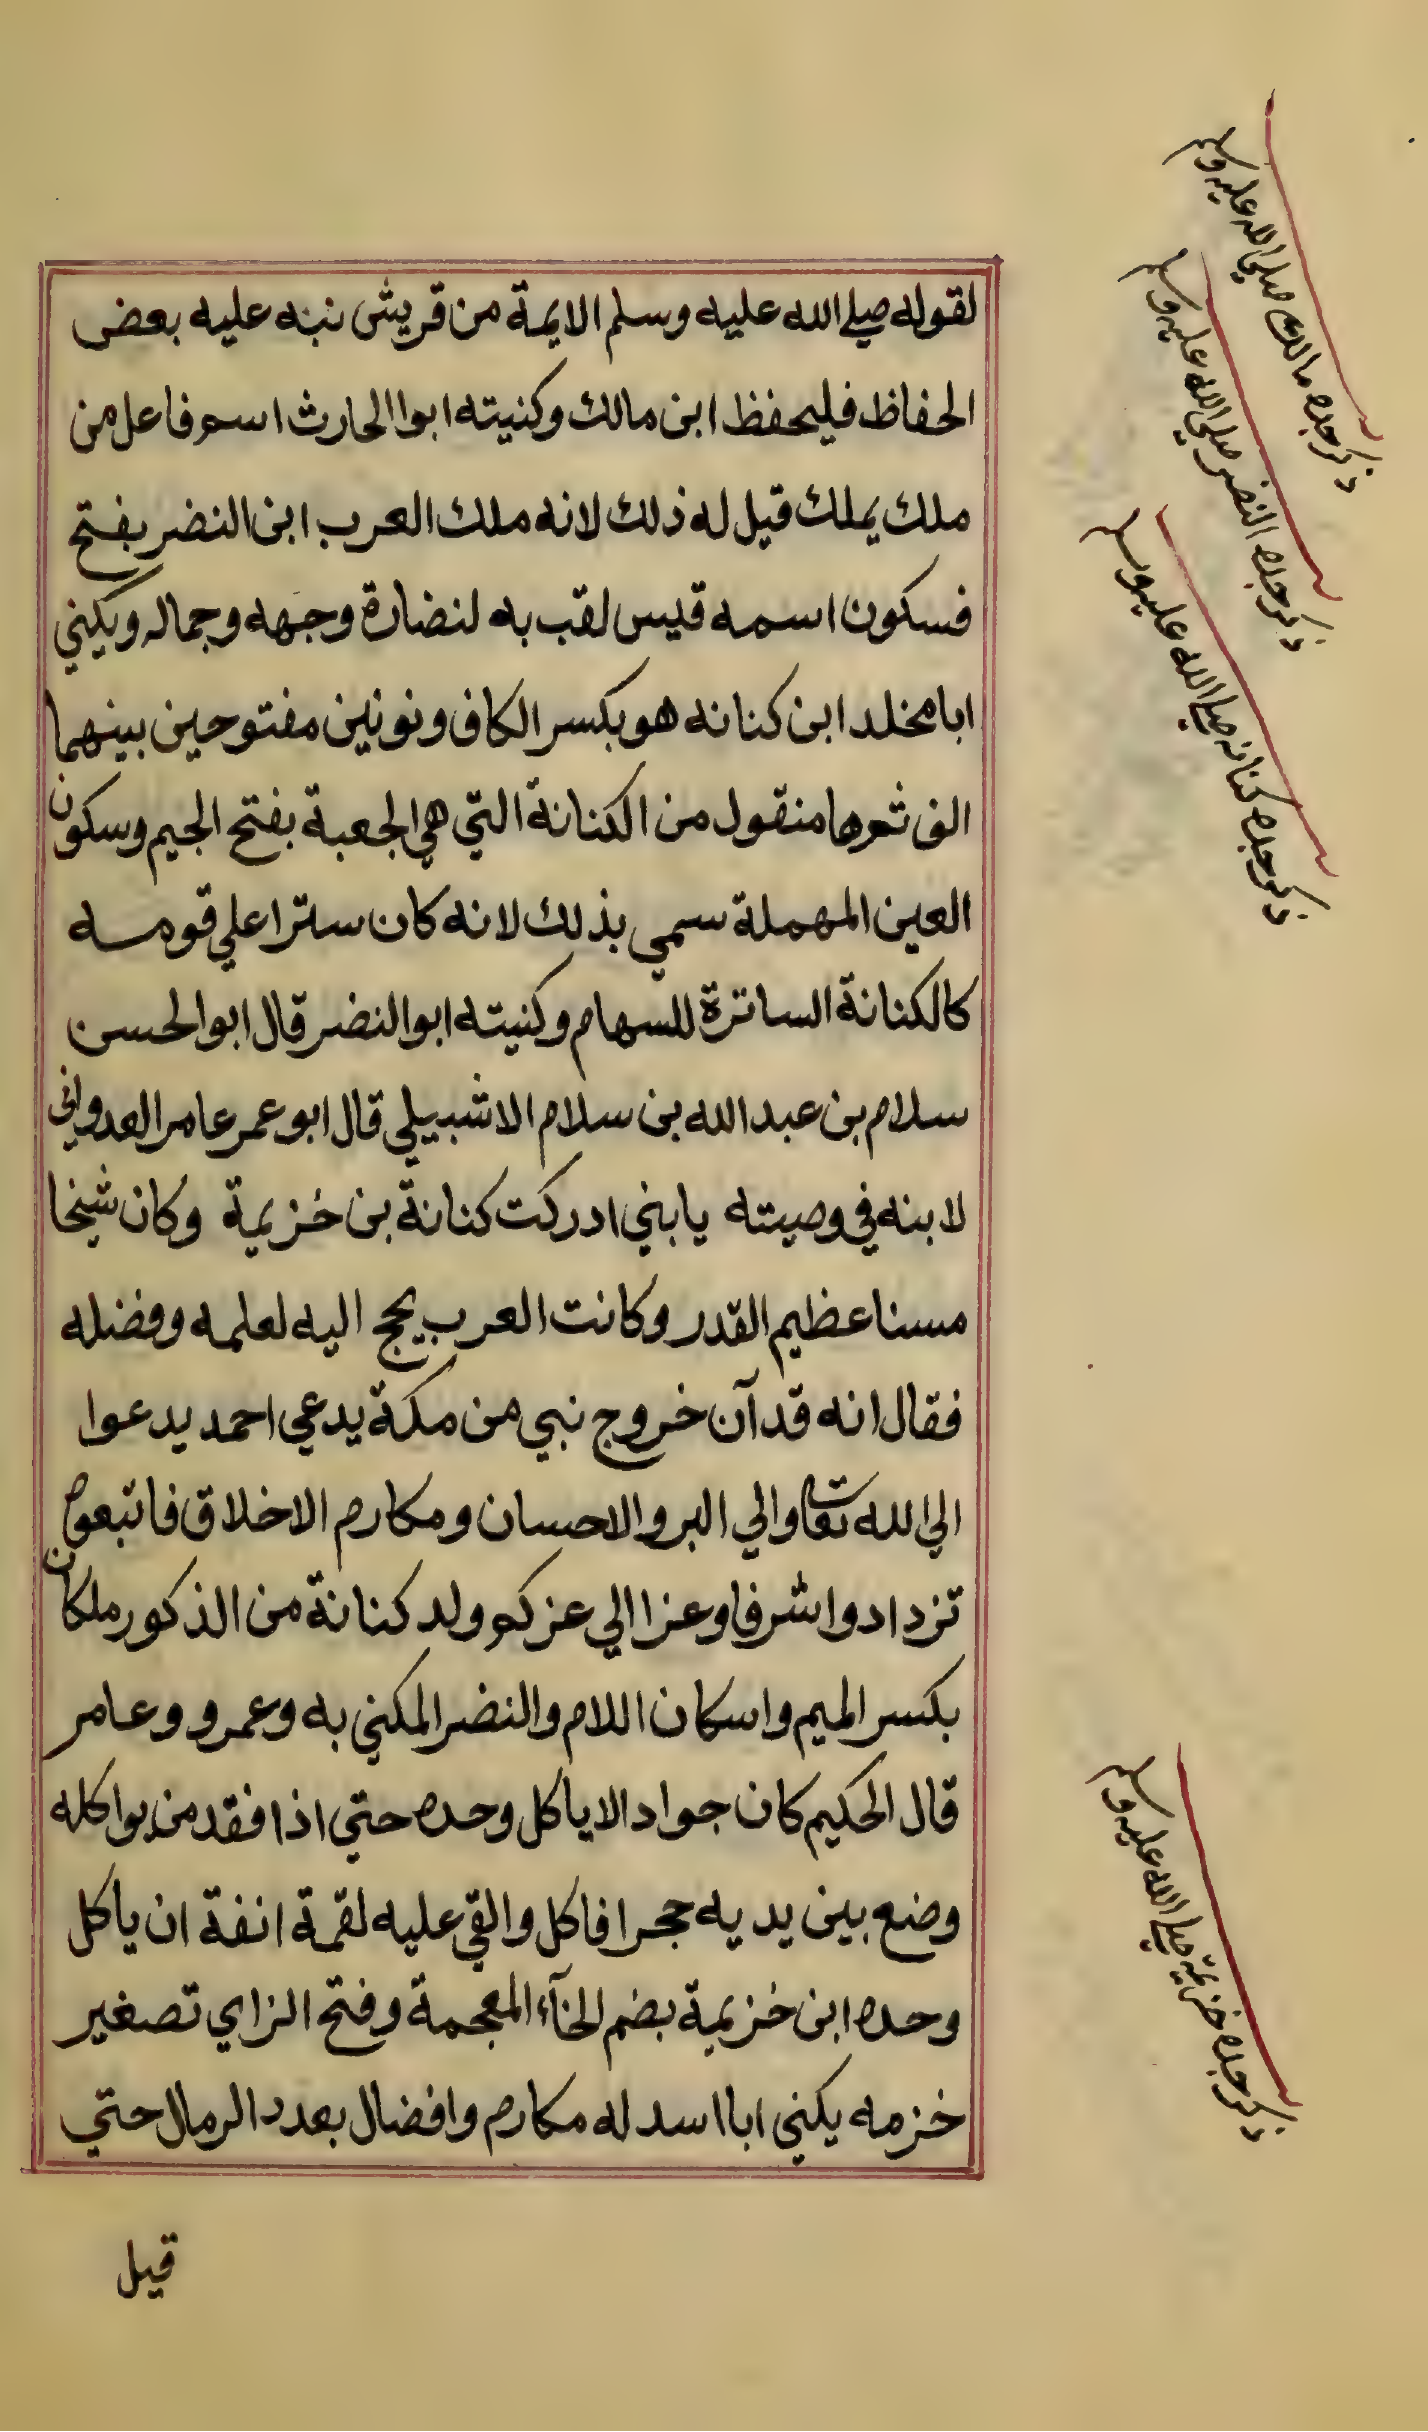 لقوله صلي الله عليه وسلم الايمة من قريش نبه عليه بعض
الحفاظ فليحفظ ابن مالك وكنيته ابوا الحارث اسم فاعل من
ملك يملك قيل له ذلك لانه ملك العرب ابن النضر بفتح
فسكون اسمه قيس لقب به لنضارة وجهه وجماله ويكني
ابا مخلد ابن كنانه هو بكسر الكاف ونونين مفتوحين بينهما
الف ثم ها منقول من الكنانة التي هي الجعبة بفتح الجيم وسكون
العين المهملة سمي بذلك لانه كان سترا علي قومه
كالكنانة الساترة للسهام وكنيته ابو النضر قال ابو الحسن
سلام بن عبد الله بن سلام الاشبيلي قال ابو عمر عامر العدواني
لابنه في وصيته يا بني ادركت كنانة بن خزيمة وكان شيخا
مسنا عظيم القدر وكانت العرب يحج اليه لعلمه وفضله
فقال انه قد آن خروج نبي من مكة يدعي احمد يدعوا
الي الله تعا والي البر والاحسان ومكارم الاخلاق فاتبعوه
تزدادوا شرفا وعزا الي عزكم وولد كنانة من الذكور ملكان
بكسر الميم واسكان اللام والنضر المكني به وعمرو وعامر
قال الحكيم كان جوادا لا ياكل وحده حتي اذا فقد من يواكله
وضع بين يديه حجرا فاكل والقي عليه لقمة انفة ان ياكل
وحده ابن خزيمة بضم الخآء المعجمة وفتح الزاي تصغير
خزمه يكني ابا اسد له مكارم وافضال بعدد الرمال حتي
قيل
ذكر جده مالك صلي الله عليه وسلم
ذكر جده النضر صلي الله عليه وسلم
ذكر جده كنانه صلي الله عليه وسلم
ذكر جده خزيمة صلي الله عليه وسلم